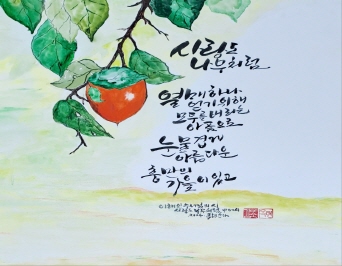 사랑도
나무처럼
열매 하나
얻기 위해
모두를 버리는
아픔으로
눈물겹게
아름다운
충만의
가을이 있고